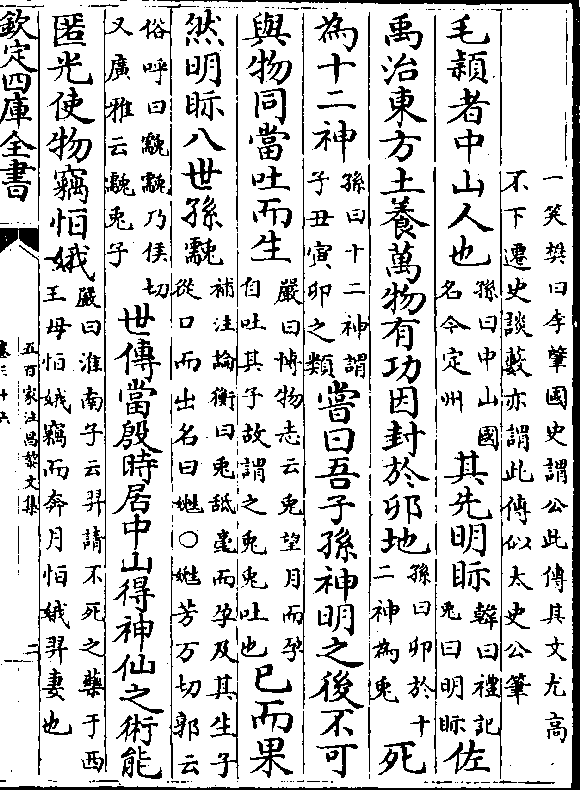 一笑樊曰李肇國史謂公此傳其文尤高
不下遷史談藪亦謂此傳似太史公筆
毛穎者中山人也孫曰中山國
名今定州其先明眎韓曰禮記
兎曰明眎佐
禹治東方土養萬物有功因封於卯地孫曰卯於十
二神為兎死
為十二神孫曰十二神謂
子丑寅卯之類嘗曰吾子孫神明之後不可
與物同當吐而生嚴曰博物志云兎望月而孕
自吐其子故謂之兎兎吐也已而果
然明眎八世孫䨲補注論衡曰兎䑛毫而孕及其生子
從口而出名曰娩○娩芳万切郭云
俗呼曰䨲䨲乃侯切
又廣雅云䨲兎子世傳當殷時居中山得神仙之術能
匿光使物竊恒娥嚴曰淮南子云羿請不死之藥于西
王母恒娥竊而奔月恒娥羿妻也
欽定四庫全書
五百家注昌黎文集
卷三十六
二